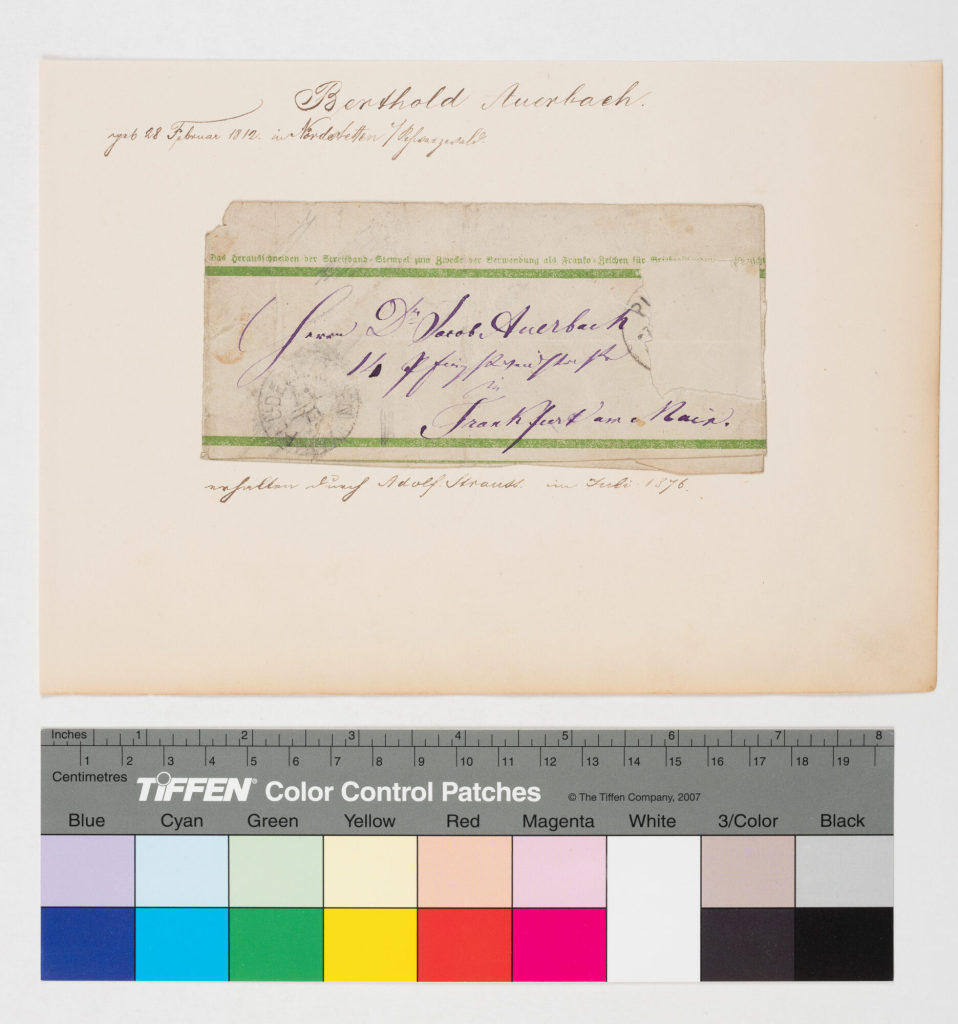 Berthold Auerbach.
geb 28 Februar 1812. in Nordstetten i/Schwarzwald.
Das Herausschneiden der Streifband-Stempel zum Zwecke der Verwendung als Franko-Zeichen für
Herrn Dr. Jacob Auerbach
14 Pfingstweidstraße
in
Frankfurt am Main.
erhalten durch Adolf Strauss. im Juli 1876.
Inches 1 2 3 4 5 6 7 8
1 2 3 4 5 6 7 8 9 10 11 12 13 14 15 16 17 18 19
Centimetres
TIFFEN® Color Control Patches © The Tiffen Company, 2007
Blue Cyan Green Yellow Red Magenta White 3/Color Black